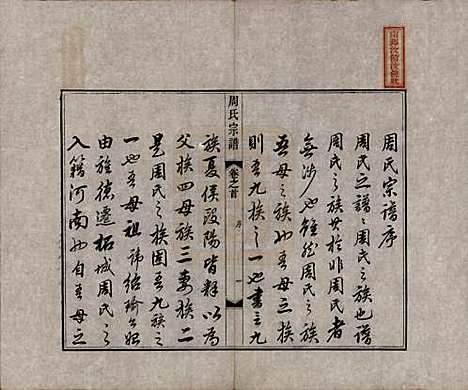 周氏宗譜序
周氏之譜譜周氏之族也譜
周氏之族其於非周氏者
無涉也雖然周氏之族
吾母之族也吾母之族
則吾九族之一也書言九
周氏宗譜
卷之首
序
一
族夏侯歐陽皆釋以為
父族四母族三妻族二
是周氏之族固吾九族之
一也吾母祖諱紹瑜公始
由旌德遷柘城周氏之
入籍河南也自吾母之